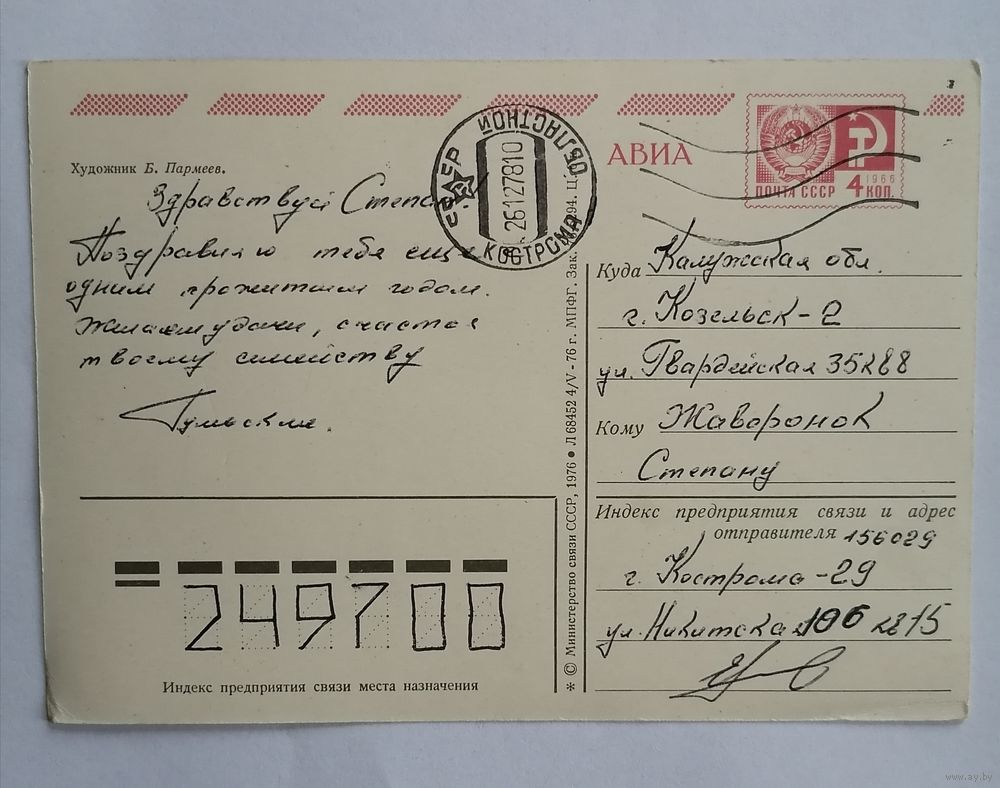 Художник Б. Пармеев.
Здравствуй Степан!
Поздравляю тебя еще
одним прожитым годом.
Желаем удачи, счастья
твоему семейству
Тульские.
СССР
КОСТРОМА ОБЛАСТНОЙ
26127810
АВИА
ПОЧТА СССР
4 КОП.
1966
Куда Калужская обл.
г. Козельск-2
ул. Гвардейская 35 кв 8
Кому Жаворонок
Степану
Индекс предприятия связи и адрес
отправителя 156029
г. Кострома-29
ул. Никитская 106 кв 15
249700
Индекс предприятия связи места назначения
* © Министерство связи СССР, 1976 • Л 68452 4/V - 76 г. МПФГ. Зак. 294. Ц.
www.ay.by